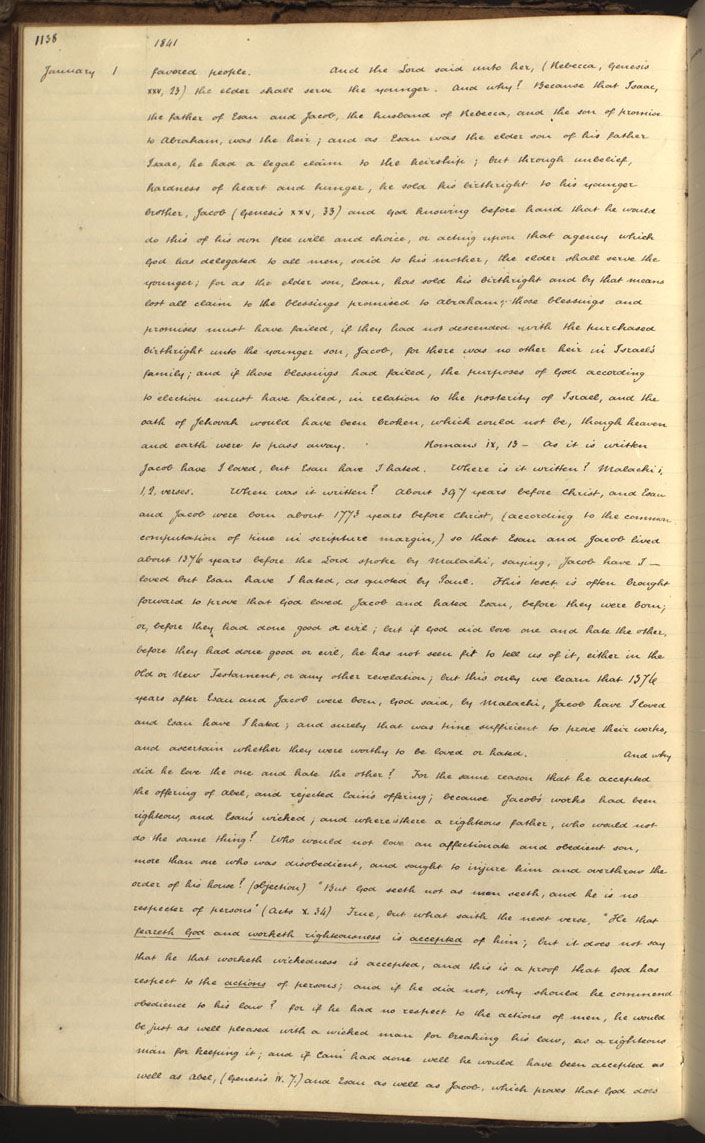 1138
1841
January 1 favored people. And the Lord said unto her, (Rebecca, Genesis
xxv, 23) the elder shall serve the younger. And why? Because that Isaac,
the father of Esau and Jacob, the husband of Rebecca, and the son of promise
to Abraham, was the heir; and as Esau was the elder son of his father
Isaac, he had a legal claim to the heirship; but through unbelief,
hardness of heart and hunger, he sold his birthright to his younger
brother, Jacob (Genesis xxv, 33) and God knowing before hand that he would
do this of his own free will and choice, or acting upon that agency which
God has delegated to all men, said to his mother, the elder shall serve the
younger; for as the elder son, Esau, has sold his birthright and by that means
lost all claim to the blessings promised to Abraham; those blessings and
promises must have failed, if they had not descended with the purchased
birthright unto the younger son, Jacob, for there was no other heir in Israel's
family; and if those blessings had failed, the purposes of God according
to election must have failed, in relation to the posterity of Israel, and the
oath of Jehovah would have been broken, which could not be, though heaven
and earth were to pass away. Romans ix, 13 — As it is written
Jacob have I loved, but Esau have I hated. Where is it written? Malachi i,
1, 2, verses. When was it written? About 397 years before Christ, and Esau
and Jacob were born about 1773 years before Christ, (according to the common
computation of time in scripture margin,) so that Esau and Jacob lived
about 1376 years before the Lord spoke by Malachi, saying, Jacob have I —
loved but Esau have I hated, as quoted by Paul. This text is often brought
forward to prove that God loved Jacob and hated Esau, before they were born;
or, before they had done good or evil; but if God did love one and hate the other,
before they had done good or evil, he has not seen fit to tell us of it, either in the
Old or New Testament, or any other revelation; but this only we learn that 1376
years after Esau and Jacob were born, God said, by Malachi, Jacob have I loved
and Esau have I hated; and surely that was time sufficient to prove their works,
and ascertain whether they were worthy to be loved or hated. And why
did he love the one and hate the other? For the same reason that he accepted
the offering of Abel, and rejected Cain's offering; because Jacob's works had been
righteous, and Esau's wicked; and where is there a righteous father, who would not
do the same thing? Who would not love an affectionate and obedient son,
more than one who was disobedient, and sought to injure him and overthrow the
order of his house? (objection) "But God seeth not as men seeth, and he is no
respecter of persons" (Acts x. 34) True, but what saith the next verse, "He that
feareth God and worketh righteousness is accepted of him; but it does not say
that he that worketh wickedness is accepted, and this is a proof that God has
respect to the actions of persons; and if he did not, why should he commend
obedience to his law? for if he had no respect to the actions of men, he would
be just as well pleased with a wicked man for breaking his law, as a righteous
man for keeping it; and if Cain had done well he would have been accepted as
well as Abel, (Genesis iv. 7.) and Esau as well as Jacob, which proves that God does